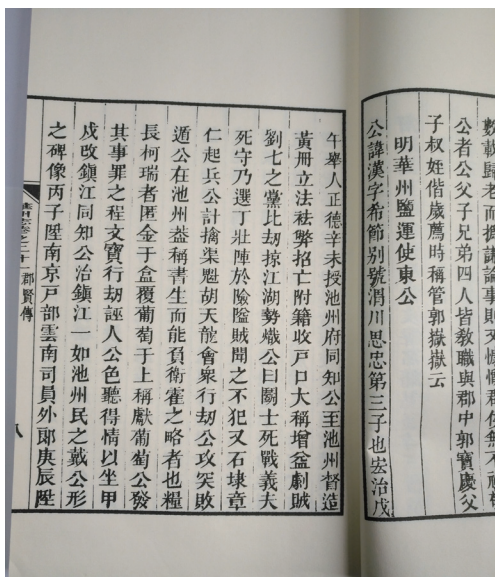 公者公父子兄弟四人皆教職與郡中郭寶慶父
子叔姪偕歲薦時稱管郭嶽嶽云
明華州鹽運使東公
公諱漢字希節别號渭川思忠第三子也宏治戊
午舉人正德辛未授池州府同知公至池州督造
黃冊立法祛弊招亡附籍收戶口大稱增益劇賊
劉七之黨比劫掠江湖勢熾公曰鬪士死戰義夫
死守乃選丁壯陣於險隘賊聞之不犯又石埭章
仁起兵公計擒渠魁胡天龍會衆行劫公攻突敗
遁公在池州益稱書生而能負衛霍之略者也糧
長柯瑞者匿金于盒覆葡萄于上稱獻葡萄公發
其事罪之程文寶行劫誣人公色聽得情以坐甲
戍改鎮江同知公治鎮江一如池州民之戴公形
之碑像丙子陞南京戸部雲南司員外郞庚辰陞
郡賢傳
八